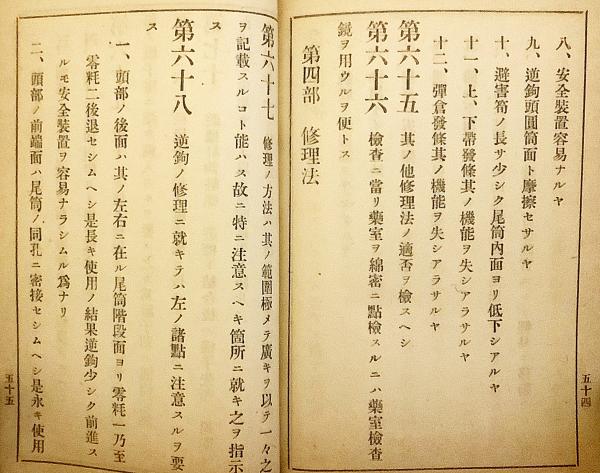 八、安全裝置容易ナルヤ
九、逆鉤頭圓筒面ト摩擦セサルヤ
十、避害筍ノ長サ少シク尾筒內面ヨリ低下シアルヤ
十一、上、下帶發條其ノ機能ヲ失シアラサルヤ
十二、彈倉發條其ノ機能ヲ失シアラサルヤ
第六十五 其ノ他修理法ノ適否ヲ檢スヘシ
第六十六 檢查ニ當リ藥室ヲ綿密ニ點檢スルニハ藥室檢查
鏡ヲ用ウルヲ便トス
第四部 修理法
五十四
第六十七 修理ノ方法ハ其ノ範圍極メテ廣キヲ以テ一々之
ヲ記載スルコト能ハス故ニ特ニ注意スヘキ箇所ニ就キ之ヲ指示
ス
第六十八 逆鉤ノ修理ニ就キテハ左ノ諸點ニ注意スルヲ要
ス
一、頭部ノ後面ハ其ノ左右ニ在ル尾筒階段面ヨリ零粍一乃至
零粍二後退セシムヘシ是長キ使用ノ結果逆鉤少シク前進ス
ルモ安全裝置ヲ容易ナラシムル爲ナリ
二、頭部ノ前端面ハ尾筒ノ同孔ニ密接セシムヘシ是永キ使用
五十五